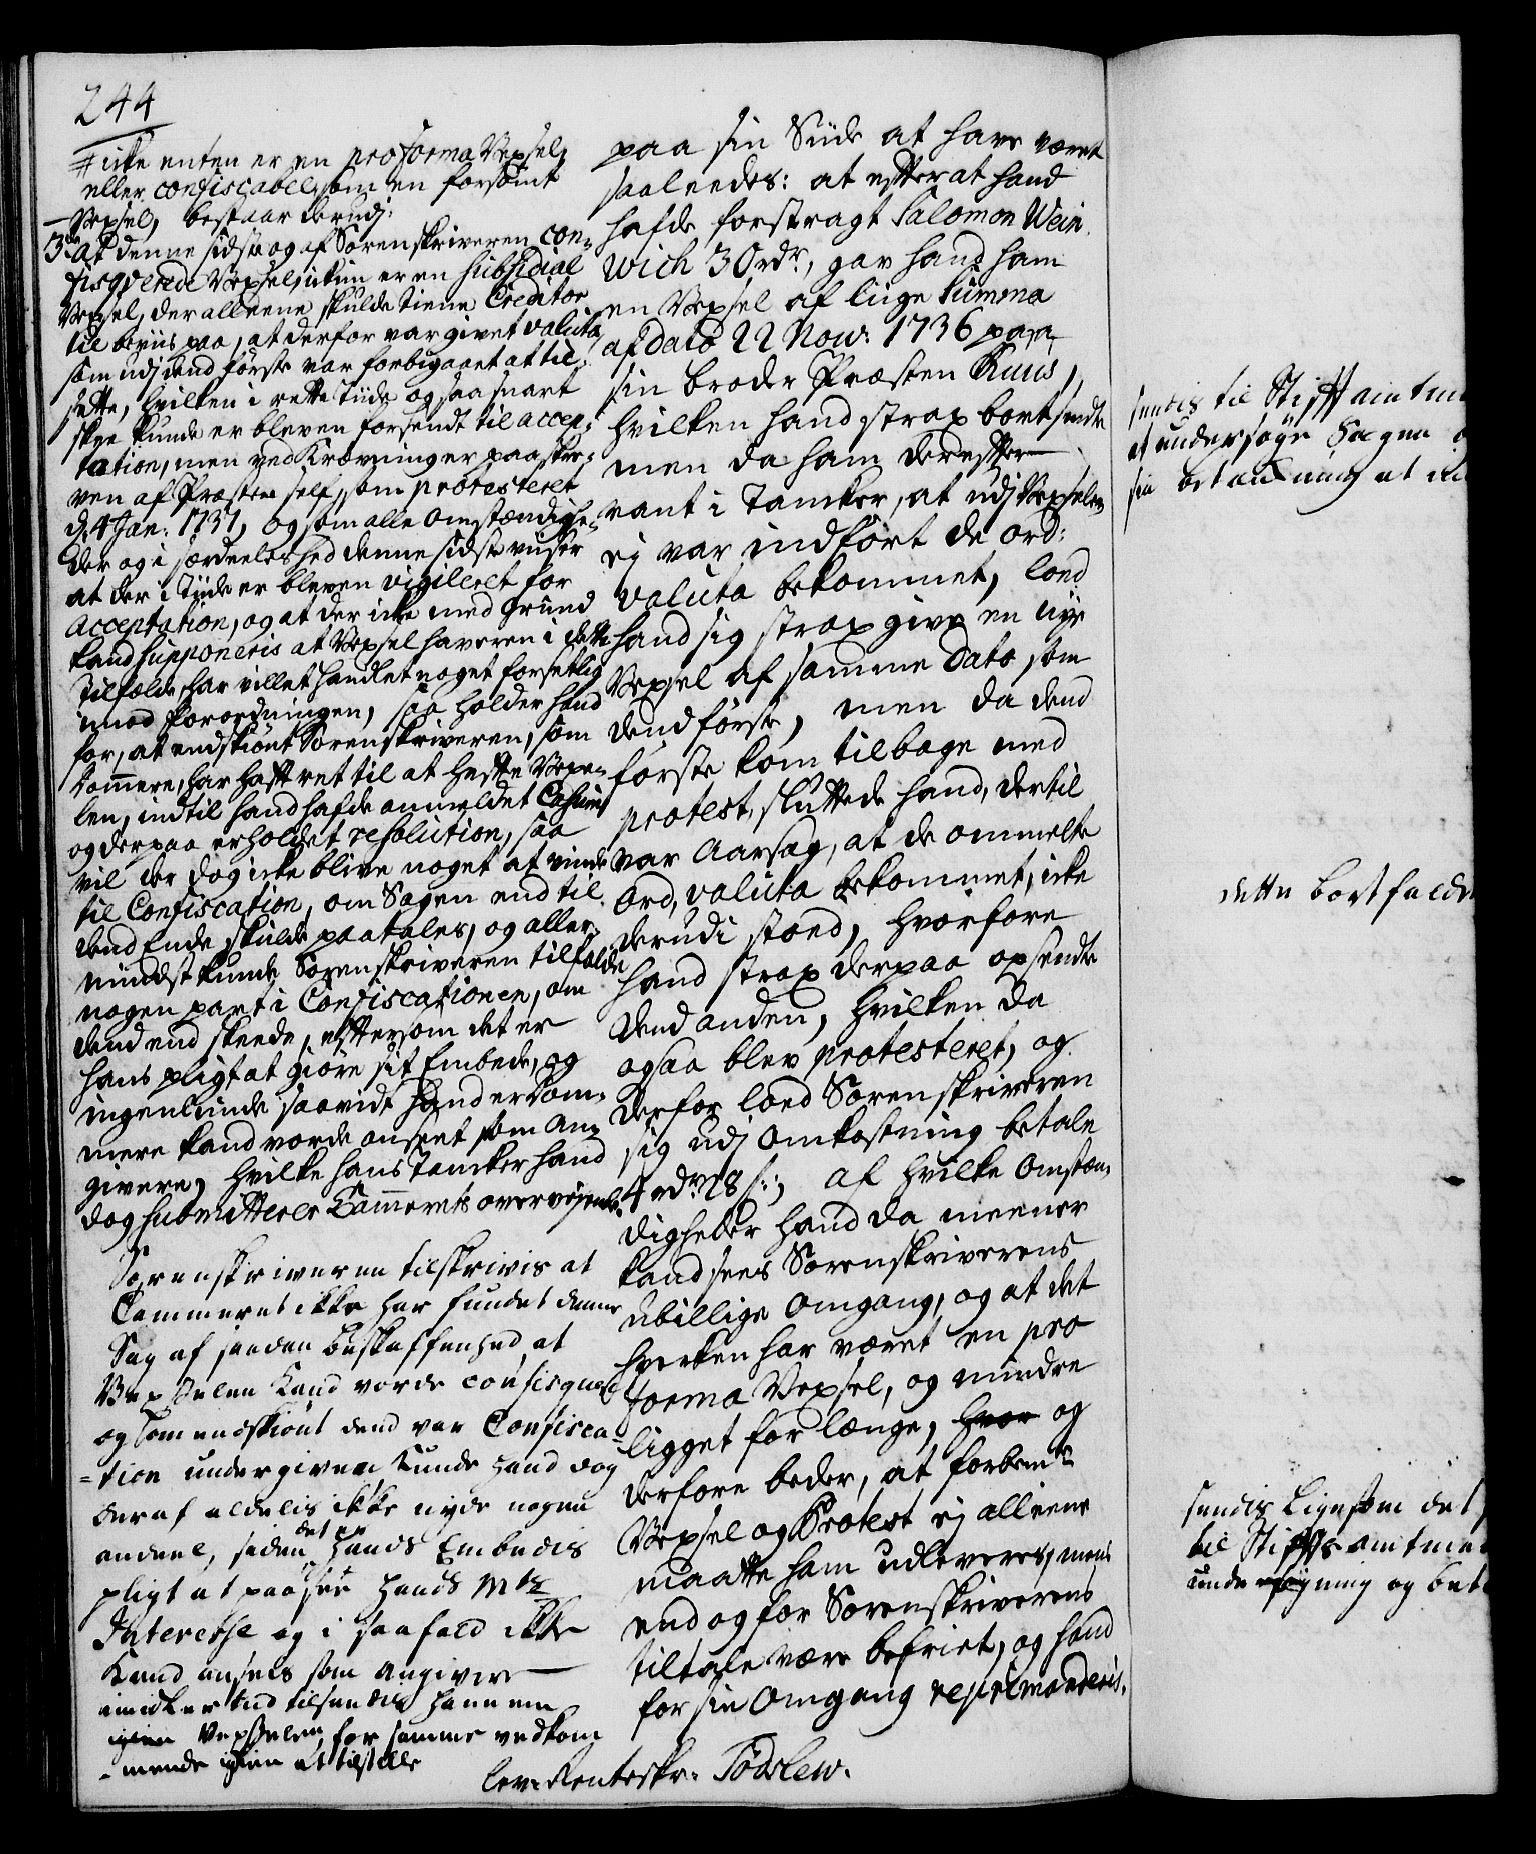 244
# icke enten er en pro forma Vexsel,
eller confiscabel som en forsömt
Vexsel, bestaar derudj:
3de at denne sidste og af Sorenskriveren con-
fisqverede Vexsel jckun er en Subsidial
Vexsel, der alleene skulde tiene Creditor
til beviis paa, at derfor var givet valuta
som udj dend förste var forbigaaet at til-
sette, hvilken i rette tiide og saa snart
skee kunde er bleven forsendt til accep-
tation, men ved Krævninger paaskre-
ven af Præsten self, som protesteret
d. 4 Jan: 1737, og som alle Omstændighe-
der og i særdeeleshed denne sidste viiser
at der i Tiide er bleven vigileret for
Acceptation, og at der icke med Grund
kand supponeris at Vexsel haveren i dette
Tilfælde har villet handlet noget forsetlig
imod forordningen, saa holder hand
for, at endskiönt Sorenskriveren, som
dommere, har haft ret til at hefte Vexe-
len, indtil hand hafde anmeldet Casum
og derpaa erholdet resolution, saa
vil der dog icke blive noget at vinde
til Confiscation, om Sagen end til
dend Ende skulde paatales, og aller-
mindst kunde Sorenskriveren tilfalde
nogen part i Confiscationen, om
dend end skeede, eftersom det er
hans pligt at giöre sit Embede, og
ingenlunde saavidt hand er Dom-
mere kand vorde anseet som An-
givere, hvilke hans Tancker hand
dog submitterer Cammerets overveyende.
Sorenskriveren tilskrivis at
Cammeret ikke har fundet denne
Sag af saadan beskaffenhed, at
Vexselen kand vorde confisqueret
og som endskiönt dend var Confisca-
-tion undergiven kunde hand dog
deraf aldelis ikke nyde nogen
andeel, siden det er hands Embedis
pligt at paasee hands Mts
Interesse og i saafald ikke
kand ansees som angiver
imidlertiid tilsendis hannem
igien Vexselen, for samme vedkom
-mende igien at tilstille
paa sin Siide at have været
saaleedes: at efter at hand
hafde forstragt Salomon Wein-
wich 30 rdr, gav hand ham
en Vexsel af liige Summa
af dato 22 Nov: 1736 paa
sin broder Præsten Ruus,
hvilken hand strax bortsendte
men da ham derefter
rant i Tancker, at udj Vexselen
ej var indfört de ord:
valuta bekommet, loed
hand sig strax give en nye
Vexsel af samme Dato som
dend förste, men da dend
förste kom tilbage med
protest, sluttede hand, dertil
var Aarsag, at de ommelte
Ord, valuta bekommet, icke
derudi stoed, hvorfore
hand strax derpaa opsendte
dend anden, hvilken da
ogsaa blev protesteret, og
derfor loed Sorenskriveren
sig udj Omkostning betale
4 rdr 28 s:, af hvilke Omstæn-
digheder hand da meener
kand sees Sorenskriverens
ubillige Omgang, og at det
hverken har været en pro
forma Vexsel, og mindre
ligget for længe, hvor og
derfore beder, at forbemte
Vexsel og Protest ej alleene
maatte ham udleveres, mens
end og for Sorenskriverens
tiltale være befriet, og hand
for sin Omgang reprimanderis.
lev: Renteskr: Todslew.
sendis til Stiftamtm
at undersöge Sagen
sin betænkning at
dette bortfalde
sendis ligesom det
til Stiftsamtm
unde og bet